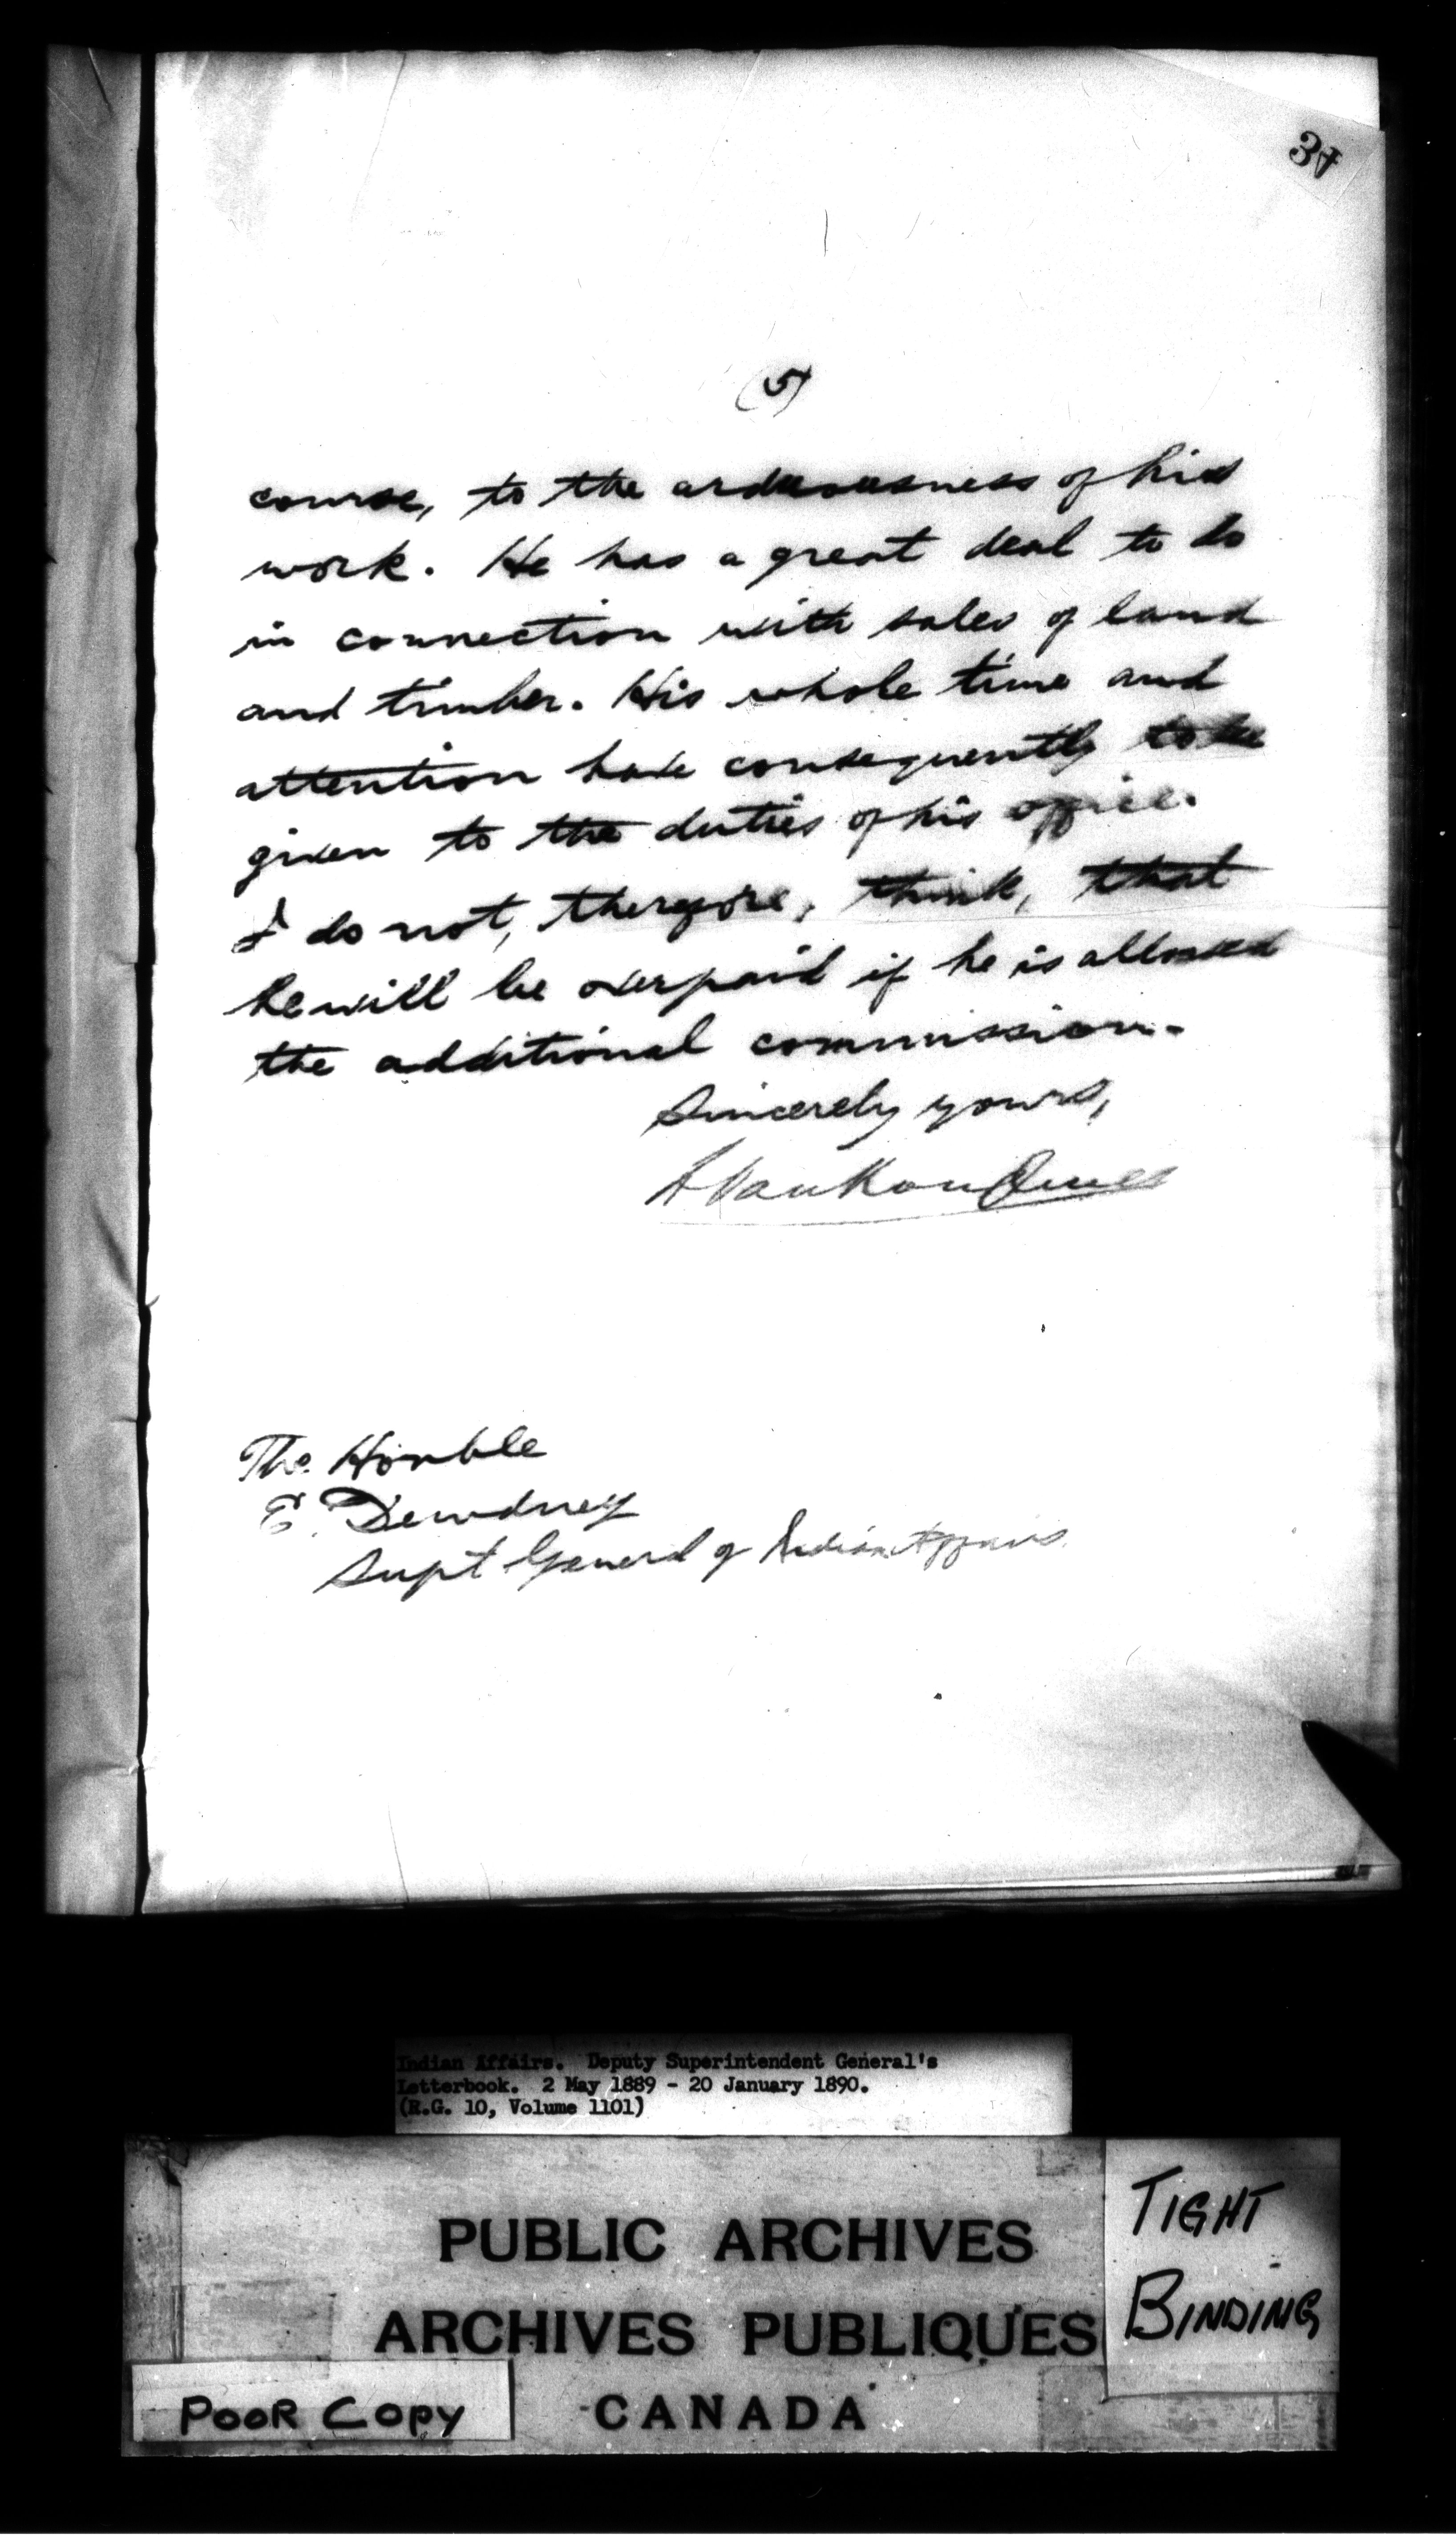 (5)
course, to the arduousness of his
work. He has a great deal to do
in connection with sales of land
and timber. His whole time and
attention have consequently to be
given to the duties of his office.
I do not, therefore, think, that
he will be overpaid if he is allowed
the additional commission.
Sincerely yours,
L VanKoughnet
The Honble
E. Dewdney
Supt General of Indian Affairs
Indian Affairs. Deputy Superintendent General's
Letterbook. 2 May 1889 - 20 January 1890.
(R.G. 10, Volume 1101)
PUBLIC ARCHIVES
ARCHIVES PUBLIQUES
CANADA
TIGHT
BINDING
POOR COPY